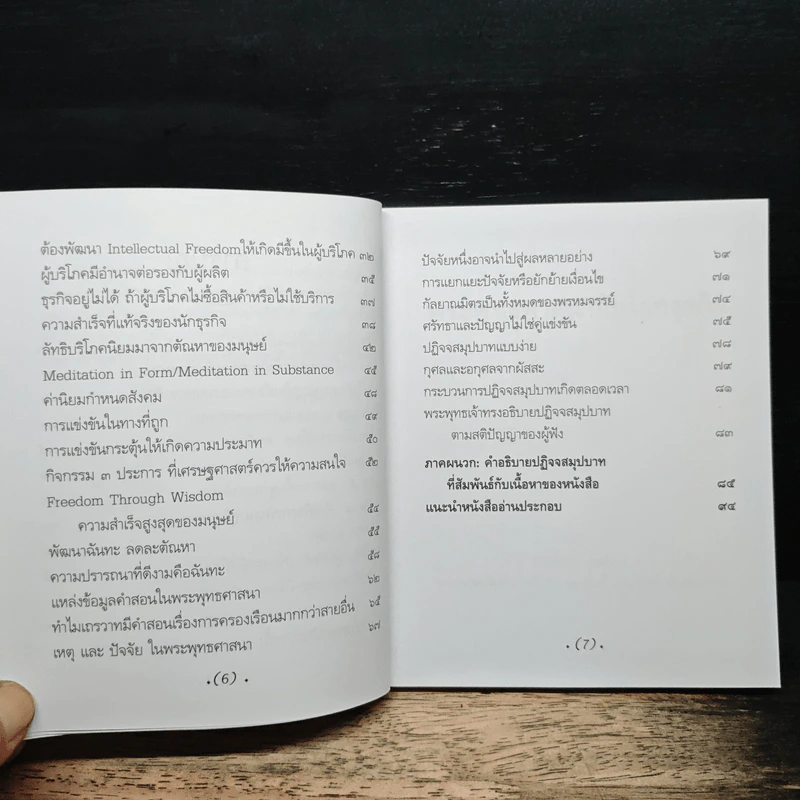 ต้องพัฒนา Intellectual Freedomให้เกิดมีขึ้นในผู้บริโภค ๓๒
ผู้บริโภคมีอำนาจต่อรองกับผู้ผลิต ๓๕
ธุรกิจอยู่ไม่ได้ ถ้าผู้บริโภคไม่ซื้อสินค้าหรือไม่ใช้บริการ ๓๗
ความสำเร็จที่แท้จริงของนักธุรกิจ ๓๘
ลัทธิบริโภคนิยมมาจากตัณหาของมนุษย์ ๔๒
Meditation in Form/Meditation in Substance ๔๕
ค่านิยมกำหนดสังคม ๔๘
การแข่งขันในทางที่ถูก ๔๙
การแข่งขันกระตุ้นให้เกิดความประมาท ๕๐
กิจกรรม ๓ ประการ ที่เศรษฐศาสตร์ควรให้ความสนใจ ๕๒
Freedom Through Wisdom
ความสำเร็จสูงสุดของมนุษย์ ๕๔
พัฒนาฉันทะ ลดละตัณหา ๕๕
ความปรารถนาที่ดีงามคือฉันทะ ๕๘
แหล่งข้อมูลคำสอนในพระพุทธศาสนา ๖๒
ทำไมเถรวาทมีคำสอนเรื่องการครองเรือนมากกว่าสายอื่น ๖๕
เหตุ และ ปัจจัย ในพระพุทธศาสนา ๖๗
.(6) .
ปัจจัยหนึ่งอาจนำไปสู่ผลหลายอย่าง ๖๙
การแยกแยะปัจจัยหรือยักย้ายเงื่อนไข ๗๑
กัลยาณมิตรเป็นทั้งหมดของพรหมจรรย์ ๗๔
ศรัทธาและปัญญาไม่ใช่คู่แข่งขัน ๗๕
ปฏิจจสมุปบาทแบบง่าย ๗๘
กุศลและอกุศลจากผัสสะ ๗๙
กระบวนการปฏิจจสมุปบาทเกิดตลอดเวลา ๘๑
พระพุทธเจ้าทรงอธิบายปฏิจจสมุปบาท
ตามสติปัญญาของผู้ฟัง ๘๓
ภาคผนวก: คำอธิบายปฏิจจสมุปบาท
ที่สัมพันธ์กับเนื้อหาของหนังสือ ๘๕
แนะนำหนังสืออ่านประกอบ ๙๔
.(7) .